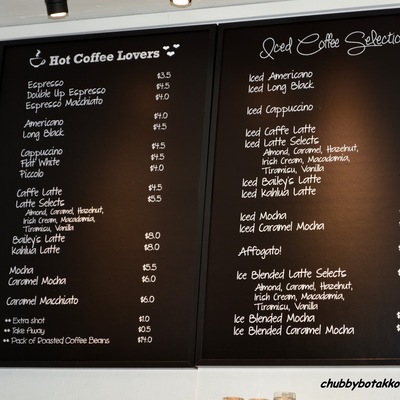 Hot Coffee Lovers
Espresso $3.5
Double Up Espresso $4.5
Espresso Macchiato $4.0
Americano $4.0
Long Black $4.5
Cappuccino $4.5
Flat White $4.5
Piccolo $4.0
Caffe Latte $4.5
Latte Selects $5.5
Almond, Caramel, Hazelnut,
Irish Cream, Macadamia,
Tiramisu, Vanilla
Bailey's Latte $8.0
Kahlua Latte $8.0
Mocha $5.5
Caramel Mocha $6.0
Caramel Macchiato $6.0
** Extra shot $1.0
** Take Away $0.5
** Pack of Roasted Coffee Beans $74.0
Iced Coffee Selectio
Iced Americano
Iced Long Black
Iced Cappuccino
Iced Caffe Latte
Iced Latte Selects
Almond, Caramel, Hazelnut,
Irish Cream, Macadamia,
Tiramisu, Vanilla
Iced Bailey's Latte
Iced Kahlua Latte
Iced Mocha
Iced Caramel Mocha
Affogato!
Ice Blended Latte Selects
Almond, Caramel, Hazelnut,
Irish Cream, Macadamia,
Tiramisu, Vanilla
Ice Blended Mocha
Ice Blended Caramel Mocha
chubbybotakko